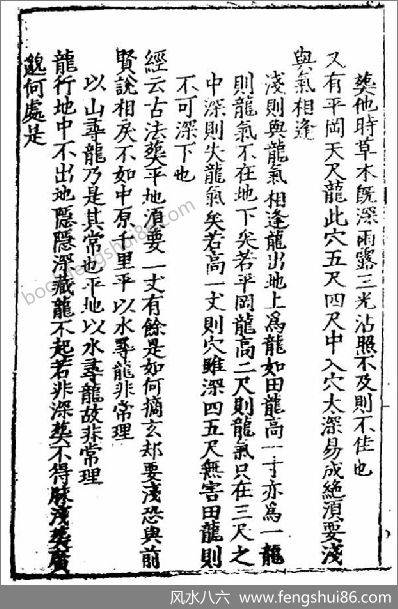 葬他時草木旣深雨露三光沾照不及則不佳也
又有平岡天尺龍此穴五尺四尺中入穴太深易成絶湏要淺
與氣相逢
淺則與龍氣相逢龍出地上爲龍如田龍高一寸亦爲一龍
則龍氣不在地下矣若平岡龍高二尺則龍氣只在三尺之
中深則失龍氣矣若高一丈則穴雖深四五尺無害田龍則
不可深下也
經云古法葬平地湏要一丈有餘是如何摘玄却要淺恐與前
賢說相戾不如中原千里平以水尋龍非常理
以山尋龍乃是其常也平地以水尋龍故非常理
龍行地中不出地隱隱深藏龍不起若非深葬不得脉淺葬廣
魏何處是
bog.fengshui86.com
风水八六 - www.fengshui86.com